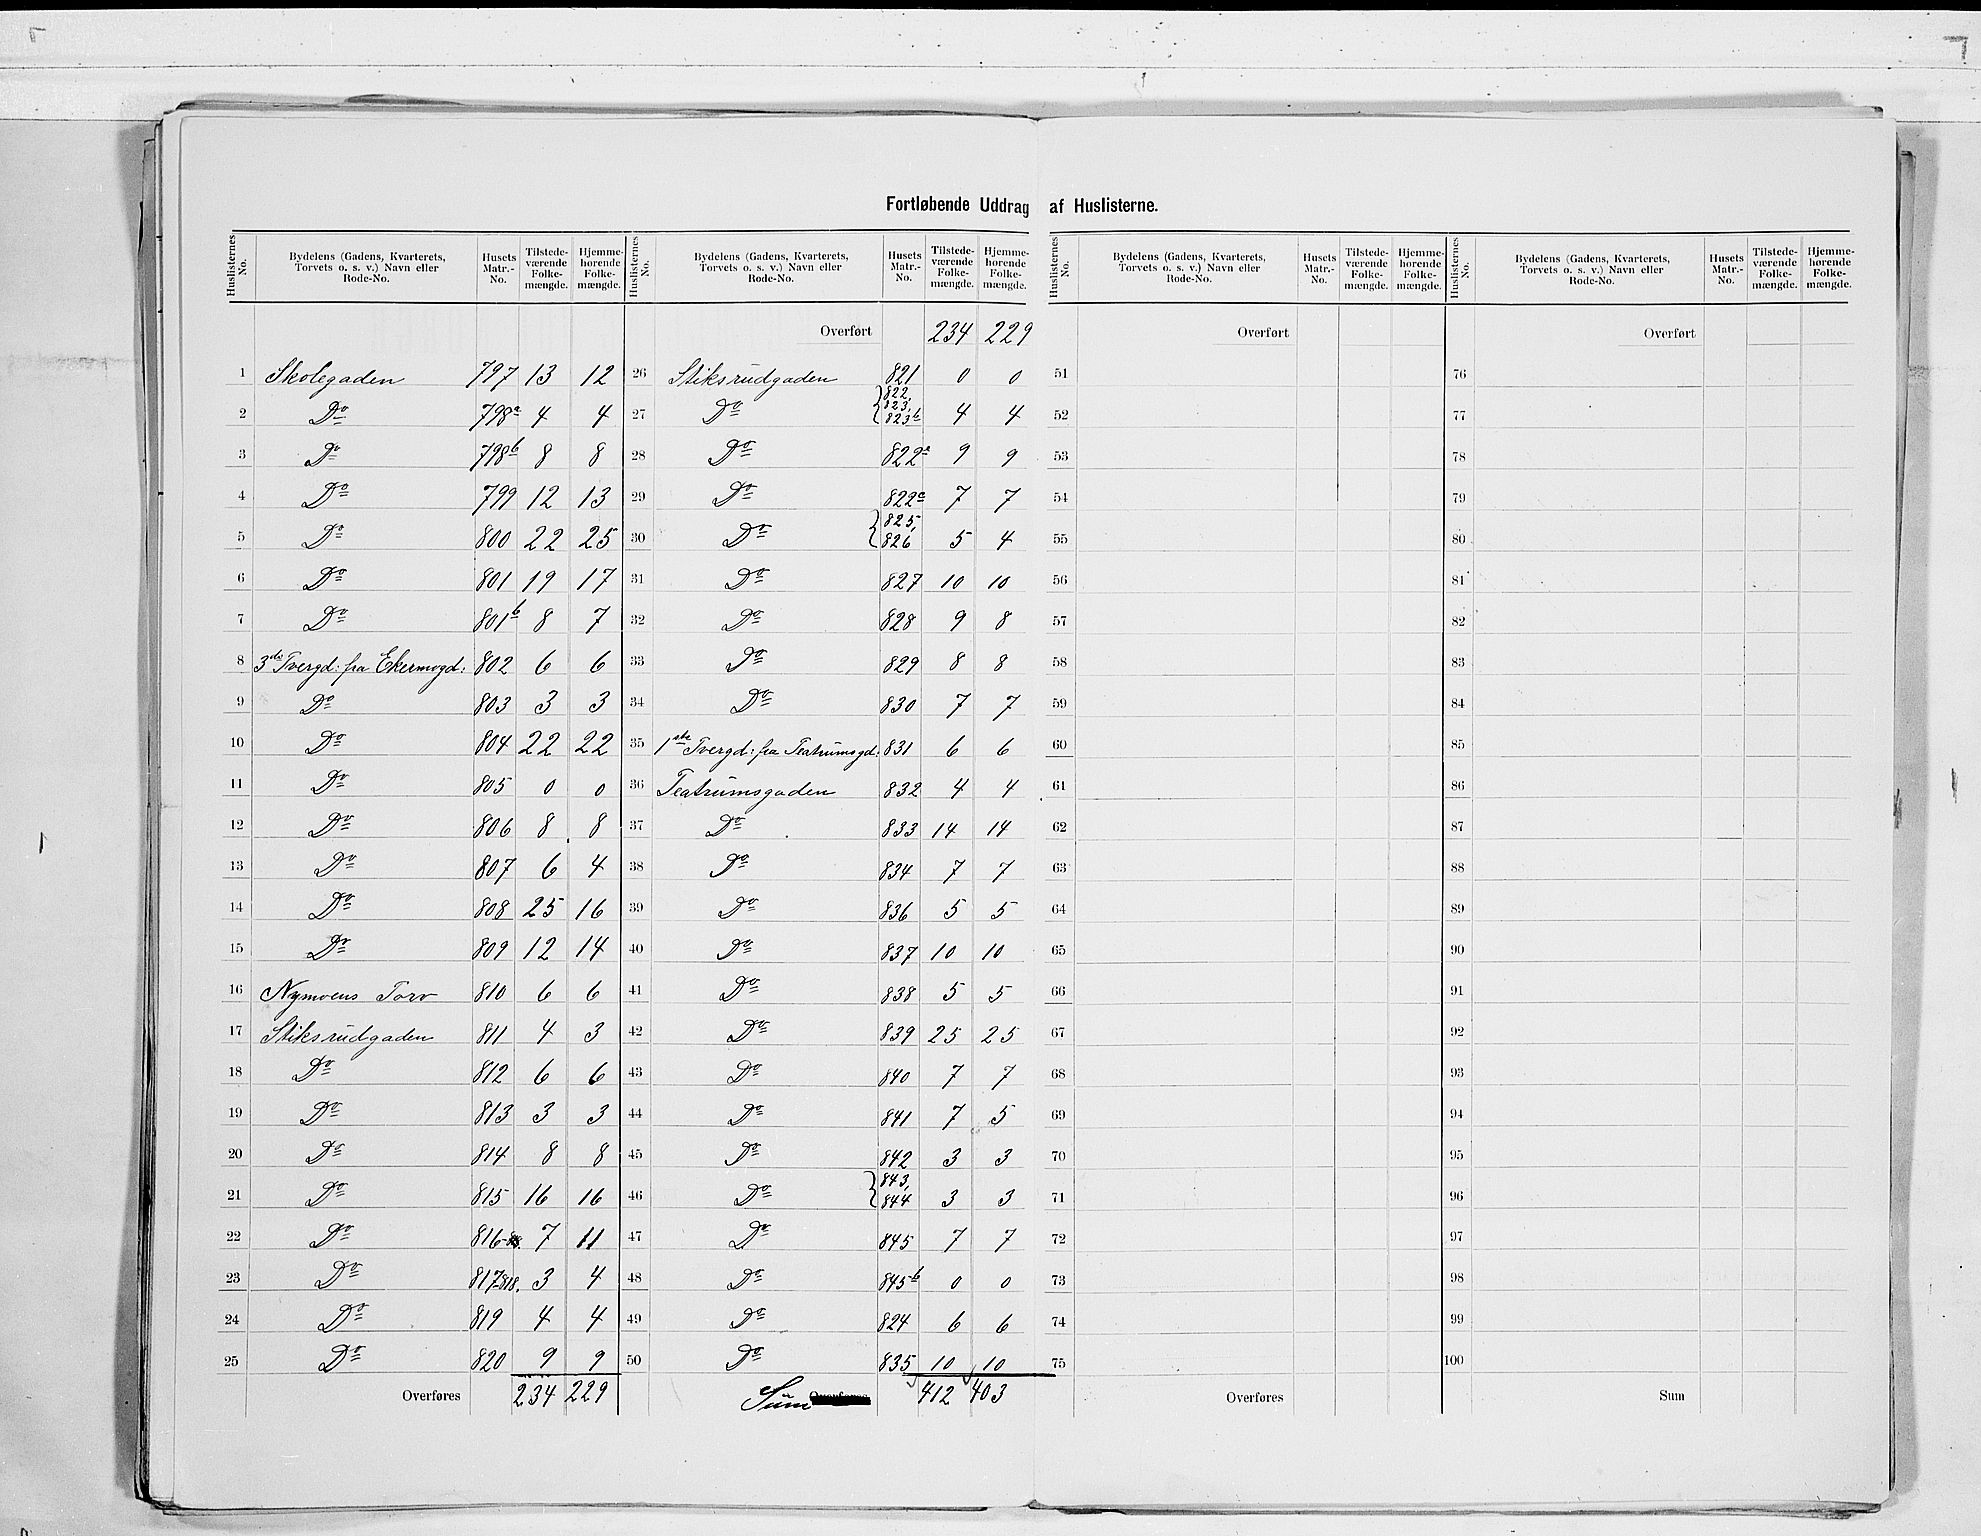 Fortløbende Uddrag af Huslisterne.
Huslisternes No. | Bydelens (Gadens, Kvarterets, Torvets o. s. v.) Navn eller Rode-No. | Husets Matr.-No. | Tilstedeværende Folkemængde. | Hjemmehørende Folkemængde.
1 Skolegaden 797 13 12
2 Do 798a 4 4
3 Do 798b 8 8
4 Do 799 12 13
5 Do 800 22 25
6 Do 801 19 17
7 Do 801b 8 7
8 3die Tvergd: fra Ekermogd: 802 6 6
9 Do 803 3 3
10 Do 804 22 22
11 Do 805 0 0
12 Do 806 8 8
13 Do 807 6 4
14 Do 808 25 16
15 Do 809 12 14
16 Nymoens Torv 810 6 6
17 Stiksrudgaden 811 4 3
18 Do 812 6 6
19 Do 813 3 3
20 Do 814 8 8
21 Do 815 16 16
22 Do 816 7 11
23 Do 817-818. 3 4
24 Do 819 4 4
25 Do 820 9 9
Overføres 234 229
Huslisternes No. | Bydelens (Gadens, Kvarterets, Torvets o. s. v.) Navn eller Rode-No. | Husets Matr.-No. | Tilstedeværende Folkemængde. | Hjemmehørende Folkemængde.
Overført 234 229
26 Stiksrudgaden 821 0 0
27 Do 822, 823, 823b 4 4
28 Do 822a 9 9
29 Do 822c 7 7
30 Do 825, 826 5 4
31 Do 827 10 10
32 Do 828 9 8
33 Do 829 8 8
34 Do 830 7 7
35 1ste Tvergd: fra Teatrumsgd: 831 6 6
36 Teatrumsgaden 832 4 4
37 Do 833 14 14
38 Do 834 7 7
39 Do 836 5 5
40 Do 837 10 10
41 Do 838 5 5
42 Do 839 25 25
43 Do 840 7 7
44 Do 841 7 5
45 Do 842 3 3
46 Do 843, 844 3 3
47 Do 845 7 7
48 Do 845b 0 0
49 Do 824 6 6
50 Do 835 10 10
Sum 412 403
Huslisternes No. | Bydelens (Gadens, Kvarterets, Torvets o. s. v.) Navn eller Rode-No. | Husets Matr.-No. | Tilstedeværende Folkemængde. | Hjemmehørende Folkemængde.
Overført
51
52
53
54
55
56
57
58
59
60
61
62
63
64
65
66
67
68
69
70
71
72
73
74
75
Overføres
Huslisternes No. | Bydelens (Gadens, Kvarterets, Torvets o. s. v.) Navn eller Rode-No. | Husets Matr.-No. | Tilstedeværende Folkemængde. | Hjemmehørende Folkemængde.
Overført
76
77
78
79
80
81
82
83
84
85
86
87
88
89
90
91
92
93
94
95
96
97
98
99
100
Sum